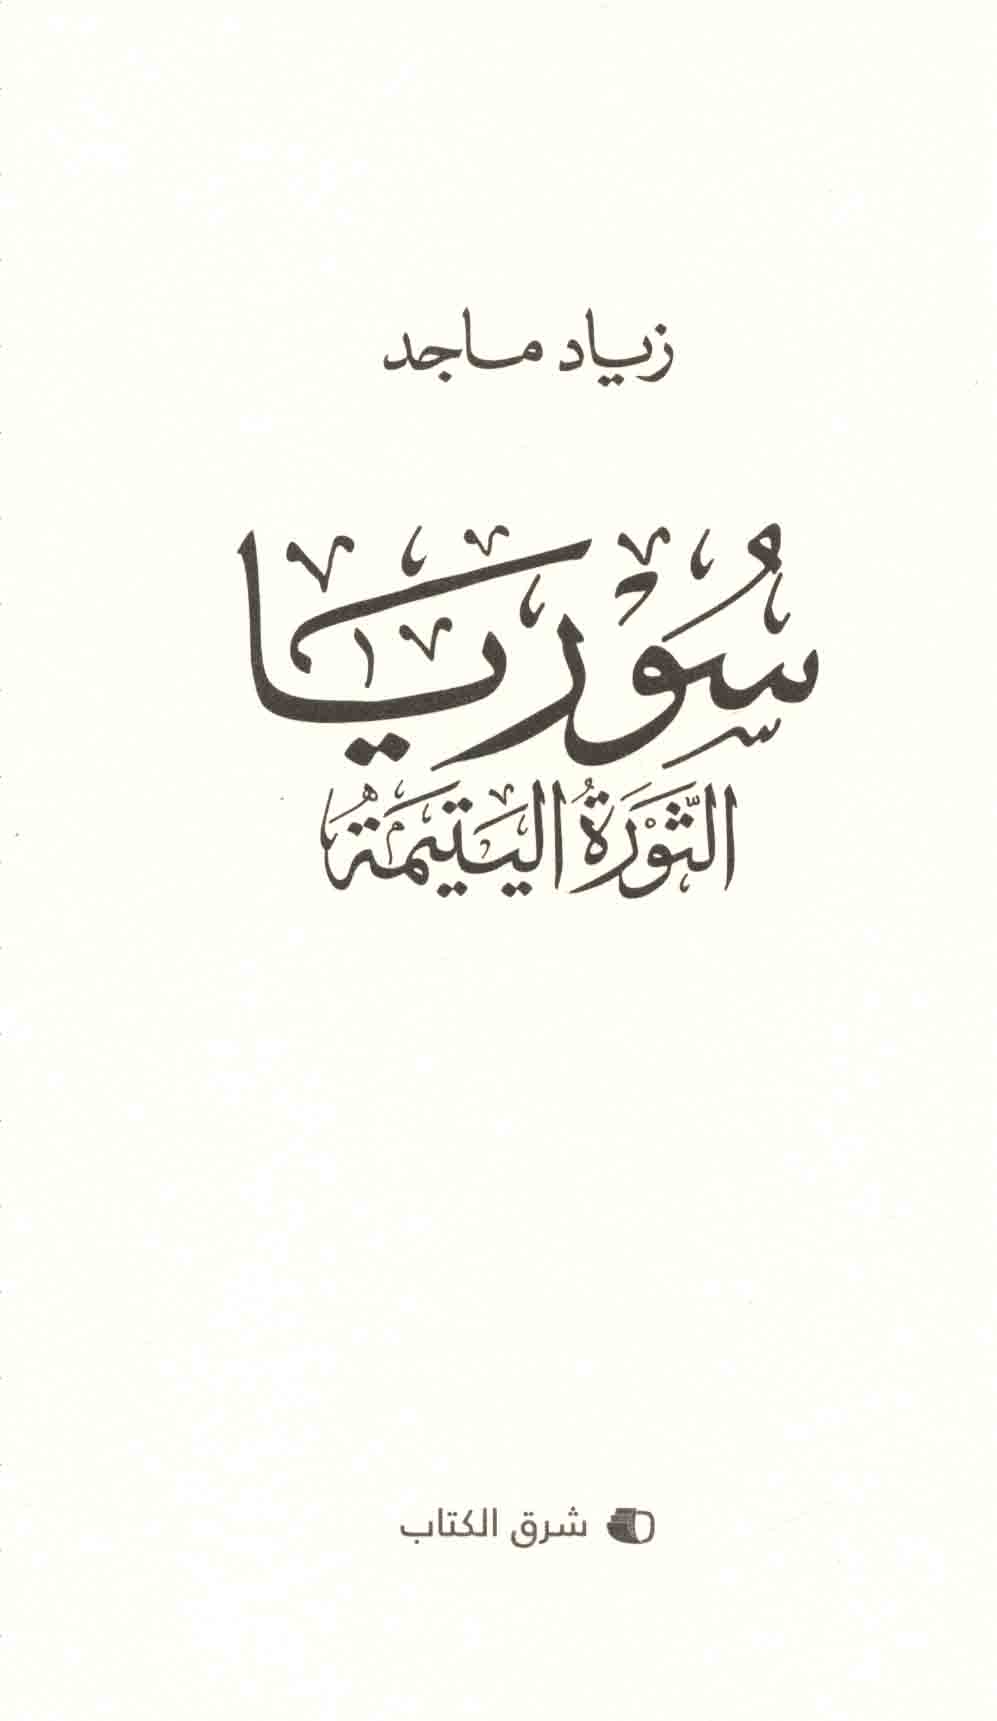 زياد ماجد
سُوْريَا
الثَّوْرَةُ اليَتيمَةُ
شرق الكتاب